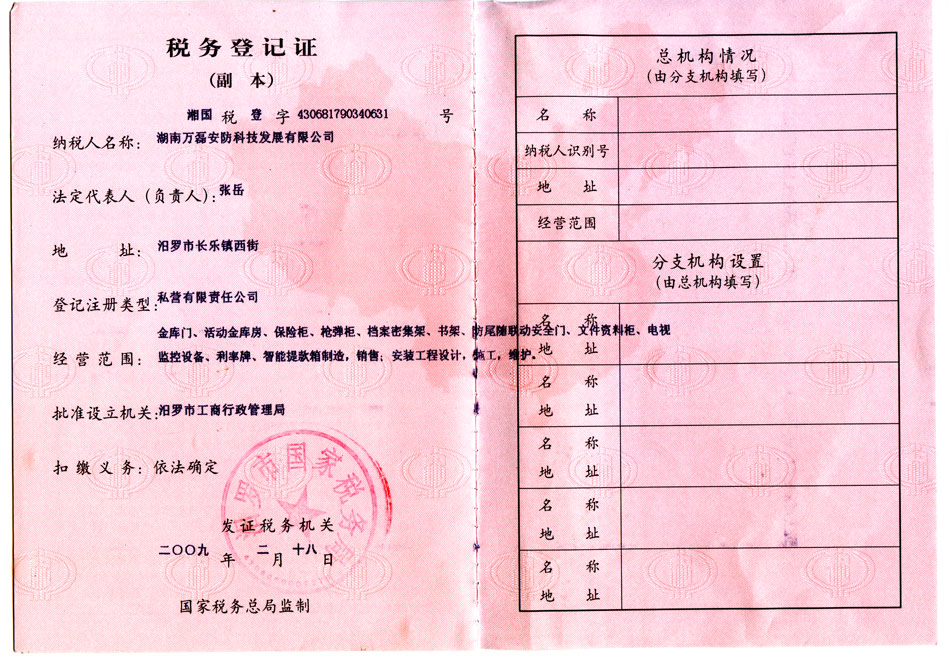 税务登记证
(副 本)
湘国 税 登 字 430681790340631 号
纳税人名称: 湖南万磊安防科技发展有限公司
法定代表人(负责人): 张岳
地 址: 汨罗市长乐镇西街
登记注册类型: 私营有限责任公司
金库门、活动金库房、保险柜、枪弹柜、档案密集架、书架、防尾随联动安全门、文件资料柜、电视
经营范围: 监控设备、利率牌、智能提款箱制造,销售;安装工程设计,施工,维护。
批准设立机关: 汨罗市工商行政管理局
扣缴义务: 依法确定
汨罗市国家税务局
发证税务机关
二〇〇九 年 二 月 十八 日
国家税务总局监制
总机构情况
(由分支机构填写)
名 称
纳税人识别号
地 址
经营范围
分支机构设置
(由总机构填写)
名 称
地 址
名 称
地 址
名 称
地 址
名 称
地 址
名 称
地 址